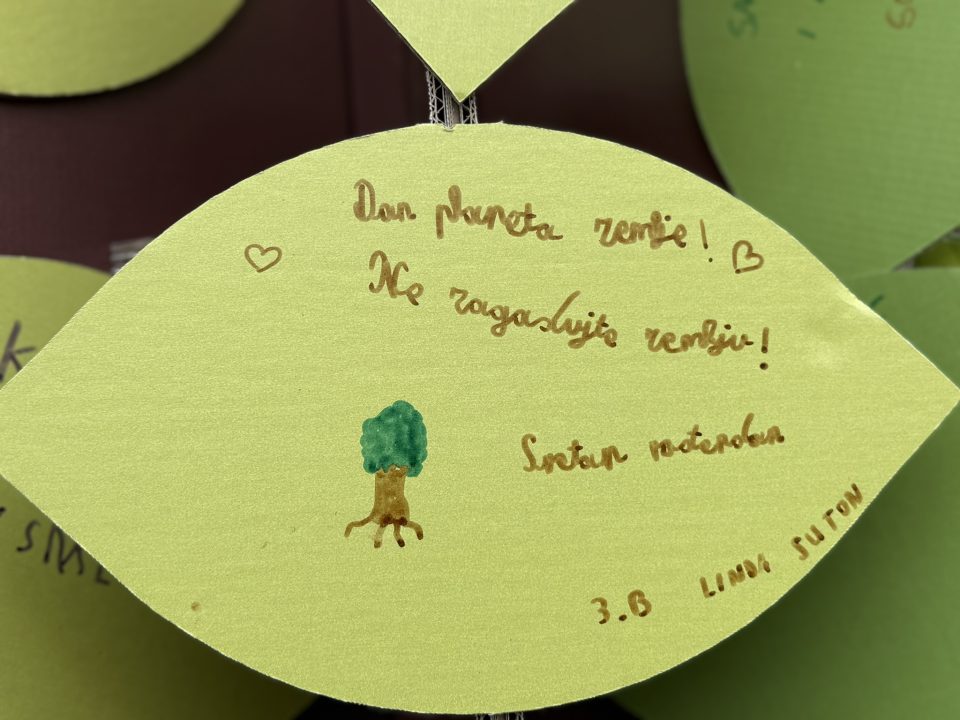 Dan planeta zemlje!
Ne zagađujte zemlju!
Sretan rođendan
3.B LINDA SUTON